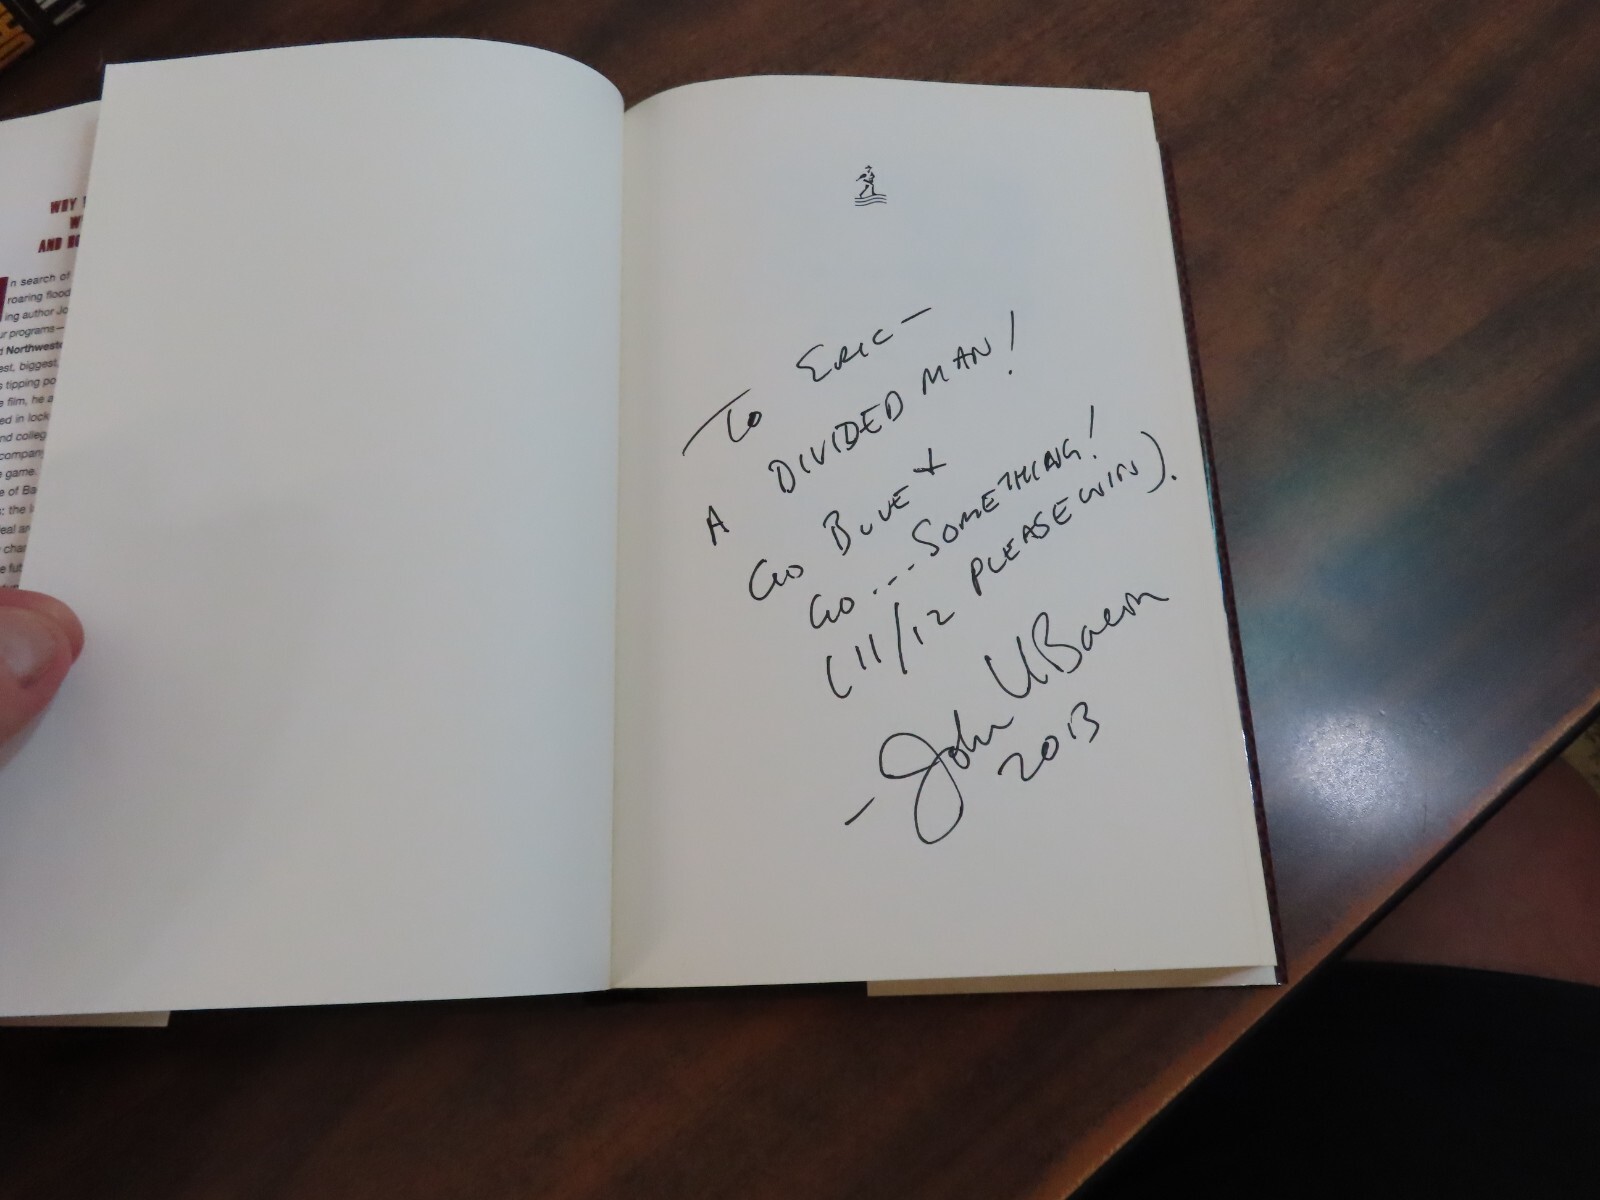 WHY
W
AND
n search of
roaring flood
ing author Jo
ur programs—
d Northweste
est, biggest,
s tipping po
e film, he a
ed in lock
nd colleg
company
e game.
e of Ba
s: the l
eal an
chan
e fut
To Eric—
A DIVIDED MAN!
Go BLUE +
Go...SOMETHING!
(11/12 PLEASE WIN).
—John U Bacon
2013